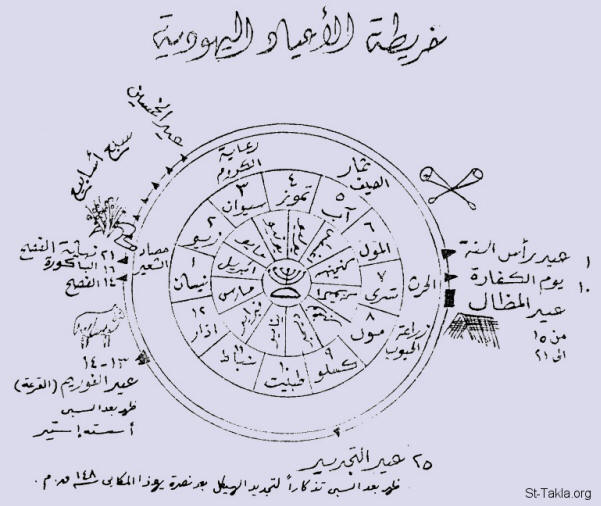 خريطة الأعياد اليهودية
عيد الخمسين
سبع أسابيع
رعاية
الكروم
ثمار
الصيف
حصاد
الشعير
الحرث
زراعة
الحبوب
١ نيسان
٢ زيو
٣ سيوان
٤ تموز
٥ آب
٦ الول
٧ تترى
٨ مول
٩ كسلو
١٠ طبيت
شباط
١٢ اذار
مارس
ابريل
مايو
١ عيد رأس السنة
١٠ يوم الكفارة
عيد المظال
من ١٥
الى ٢١
٢١ نهاية الفصح
١٦ الباكورة
١٤ الفصح
١٣-١٤
عيد الفوريم (القرعة)
ظهر بعد السبى
أسسته إستير
٢٥ عيد التجديد
ظهر بعد السبى تذكاراً لتجديد الهيكل بعد نصرة يهوذا المكابى سنة ١٤٨ ق.م.
St-Takla.org